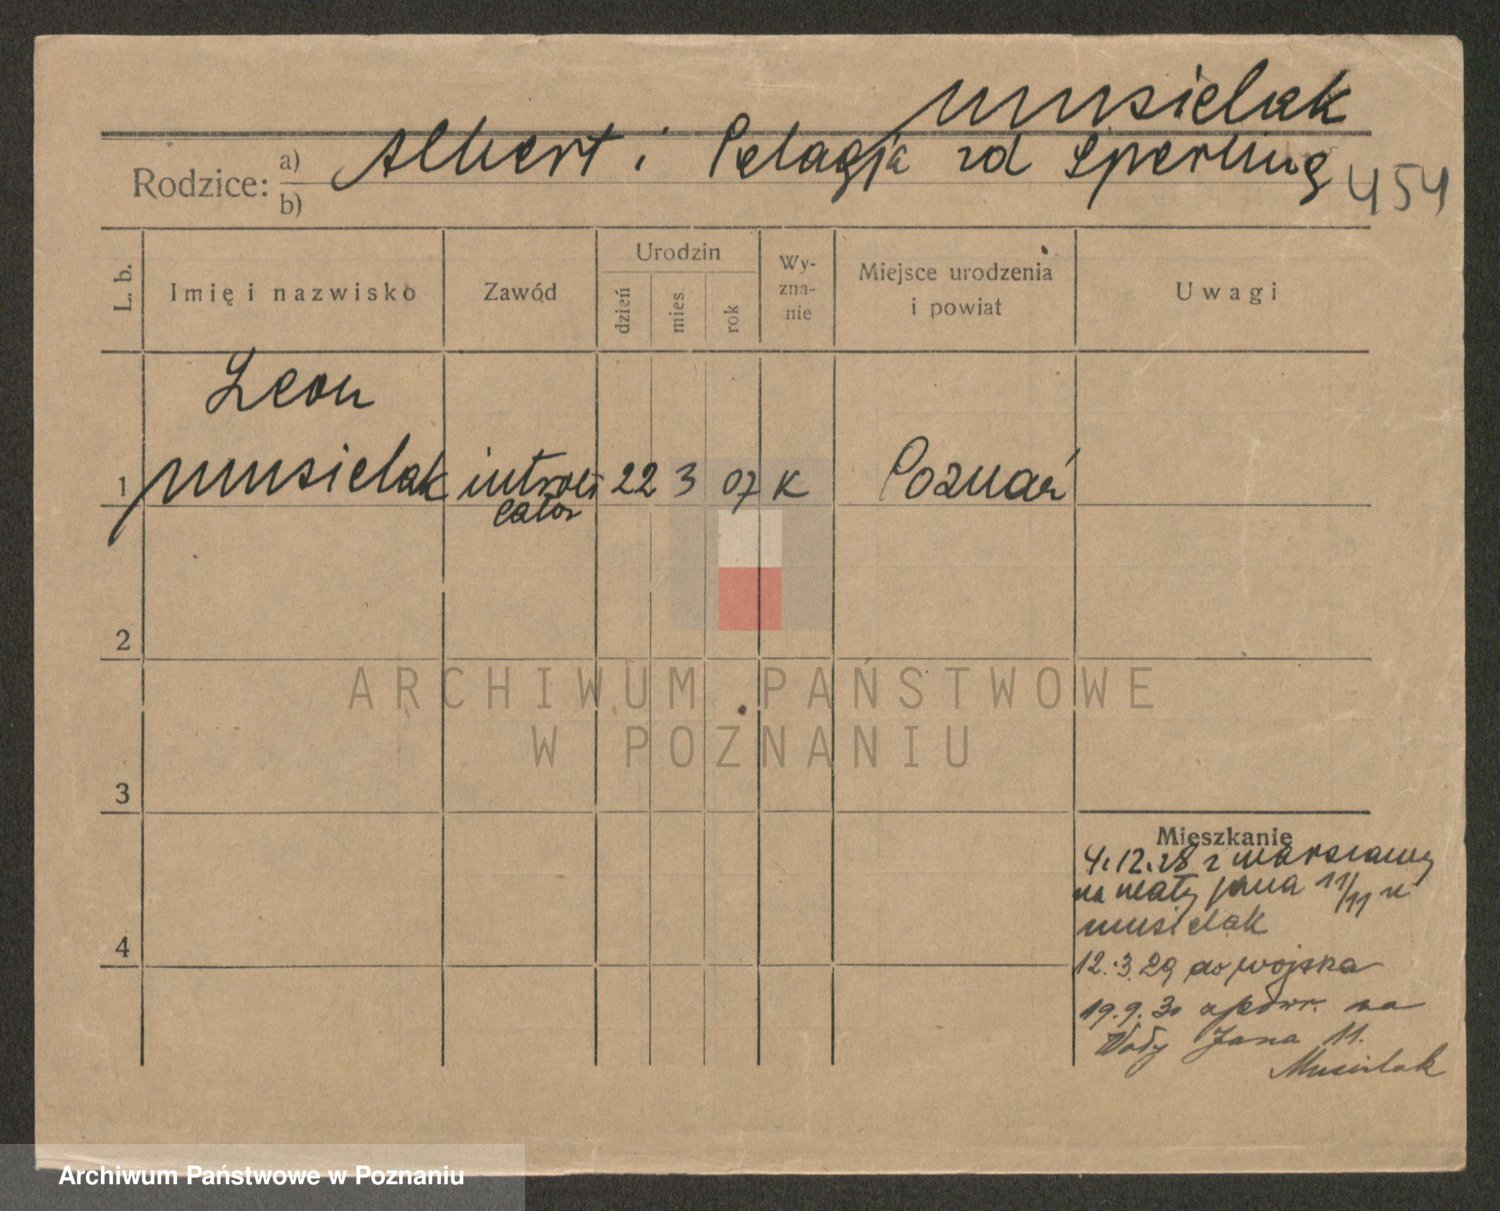 Musielak
Rodzice: a) Albert i Pelagja zd Sperling
b)
454
L. b.
Imię i nazwisko
Zawód
Urodzin
dzień
mies.
rok
Wy-
zna-
nie
Miejsce urodzenia
i powiat
Uwagi
Leon
1 Musielak introli 22 3 07 K Poznań
gator
2
3
4
Mieszkanie
4.12.28 z Warszawy
na Jana 11/11 u
Musielak
12.3.29 do wojska
19.9.30 na
Jana 11.
Musielak
ARCHIWUM PAŃSTWOWE
W POZNANIU
Archiwum Państwowe w Poznaniu